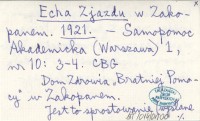 Echa Zjazdu w Zako-
panem. 1921. - Samopomoc
Akademicka (Warszawa) 1,
nr 10: 3-4. CBG
Dom Zdrowia „Bratniej Pomo-
cy" w Zakopanem.
Jest to sprostowanie